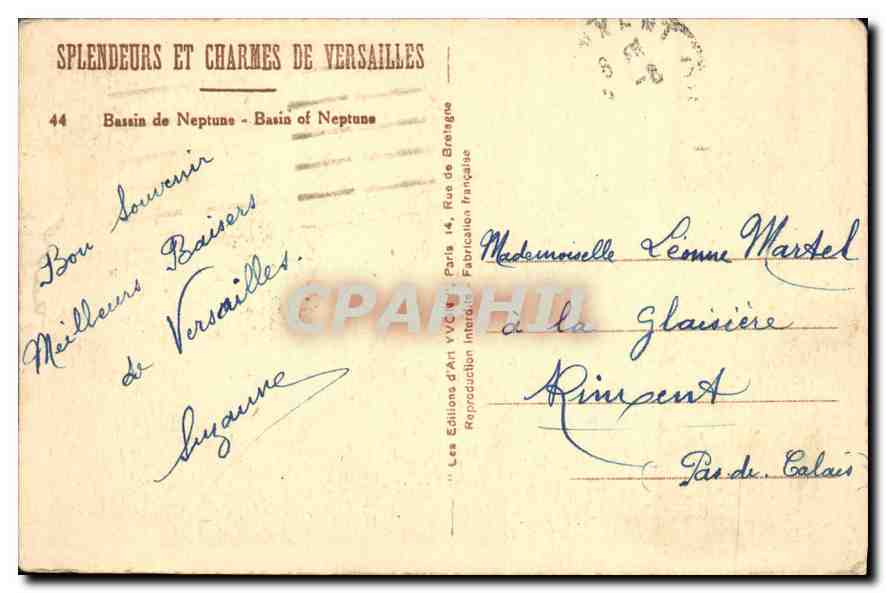 SPLENDEURS ET CHARMES DE VERSAILLES
44 Bassin de Neptune - Basin of Neptune
Bon Souvenir
Meilleurs Baisers
de Versailles.
Suzanne
" Les Editions d'Art YVON", Paris 14, Rue de Bretagne
Reproduction Interdite - Fabrication française
Mademoiselle Léonne Martel
à la Glaisière
Rinxent
(Pas-de-Calais)
CPAPHIL